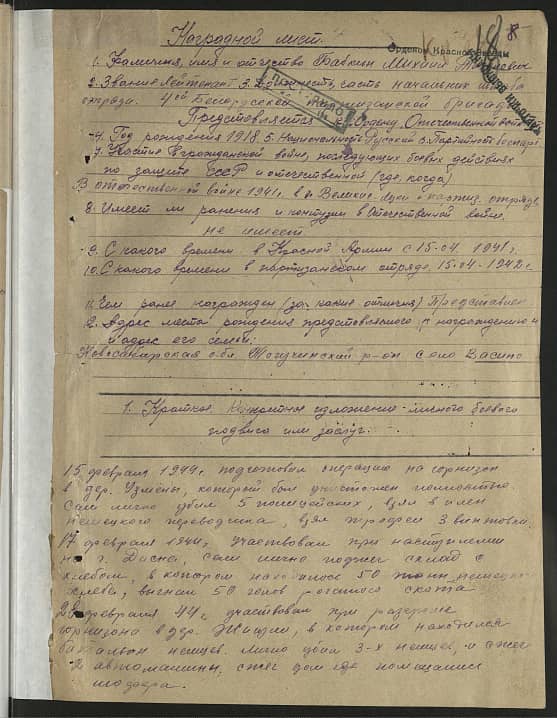 Наградной лист.
Орденом Красной Звезды
1. Фамилия, имя и отчество Бабкин Михаил
2. Звание Лейтенант 3. Должность, часть начальник штаба
отряда. 4ой Белорусской партизанской бригады
Представляется к Ордену Отечественной
4. Год рождения 1918 5. Национальность Русский 6. Партийность
7. Участие в гражданской войне, последующих боевых действиях
по защите СССР и отечественной (где, когда)
В отечественной войне 1941г. в Великие Луки
8. Имеет ли ранения и контузии в Отечественной войне,
не имеет
9. С какого времени в Красной Армии с 15-04 1941г.
10. С какого времени в партизанском отряде, 15-04-1942г.
11. Чем ранее награжден (за какие отличия) Представлен
12. Адрес места рождения представляемого к награждению и
адрес его семьи:
Новосибирская обл Тогучинский р-он село
1. Краткое конкретное изложение личного боевого
подвига или заслуг.
15 февраля 1944г. подготовил операцию на гарнизон
в дер. Узмены, который был уничтожен полностью.
Сам лично убил 5 полицейских, взял в плен
немецкого переводчика, взял трофеи 3 винтовки.
17 февраля 1944г. участвовал при наступлении
на г. Дисна, сам лично поджег склад с
хлебом, в котором находилось 50 тонн немецкого
хлеба, выгнал 50 голов рогатого скота
28 февраля 44г. участвовал при разгроме
гарнизона в дер. в котором находился
батальон немцев. Лично убил 3-х немцев, и сжег
2 автомашины, сжег дом где помещались
шофера.